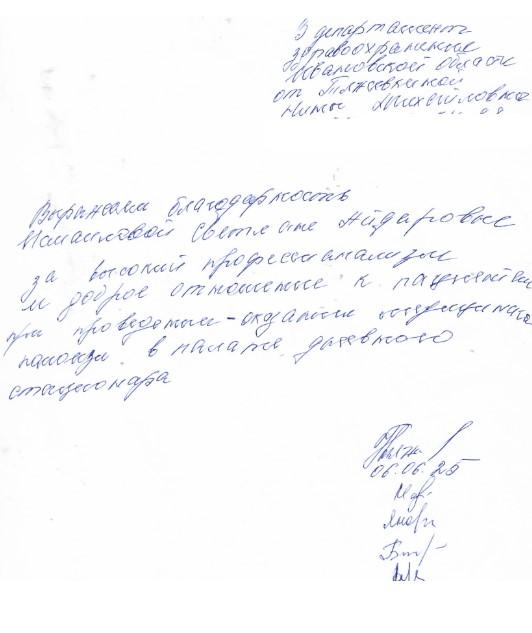 В департамент
здравоохранения
Ивановской области
от Пяжевкиной
Нины Михайловны
Выражаем благодарность
Исмаиловой Светлане Айдаровне
за высокий профессионализм
и доброе отношение к пациентам
при проведении-оказании медицинской
помощи в палате дневного
стационара
06.06.25